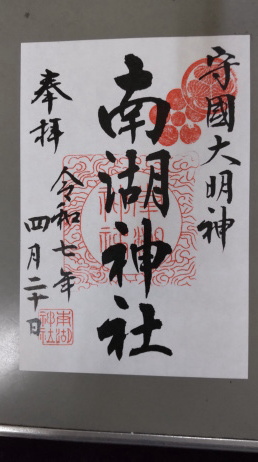 守國大明神
南湖神社
奉拝
令和七年
四月二十日
南湖神社